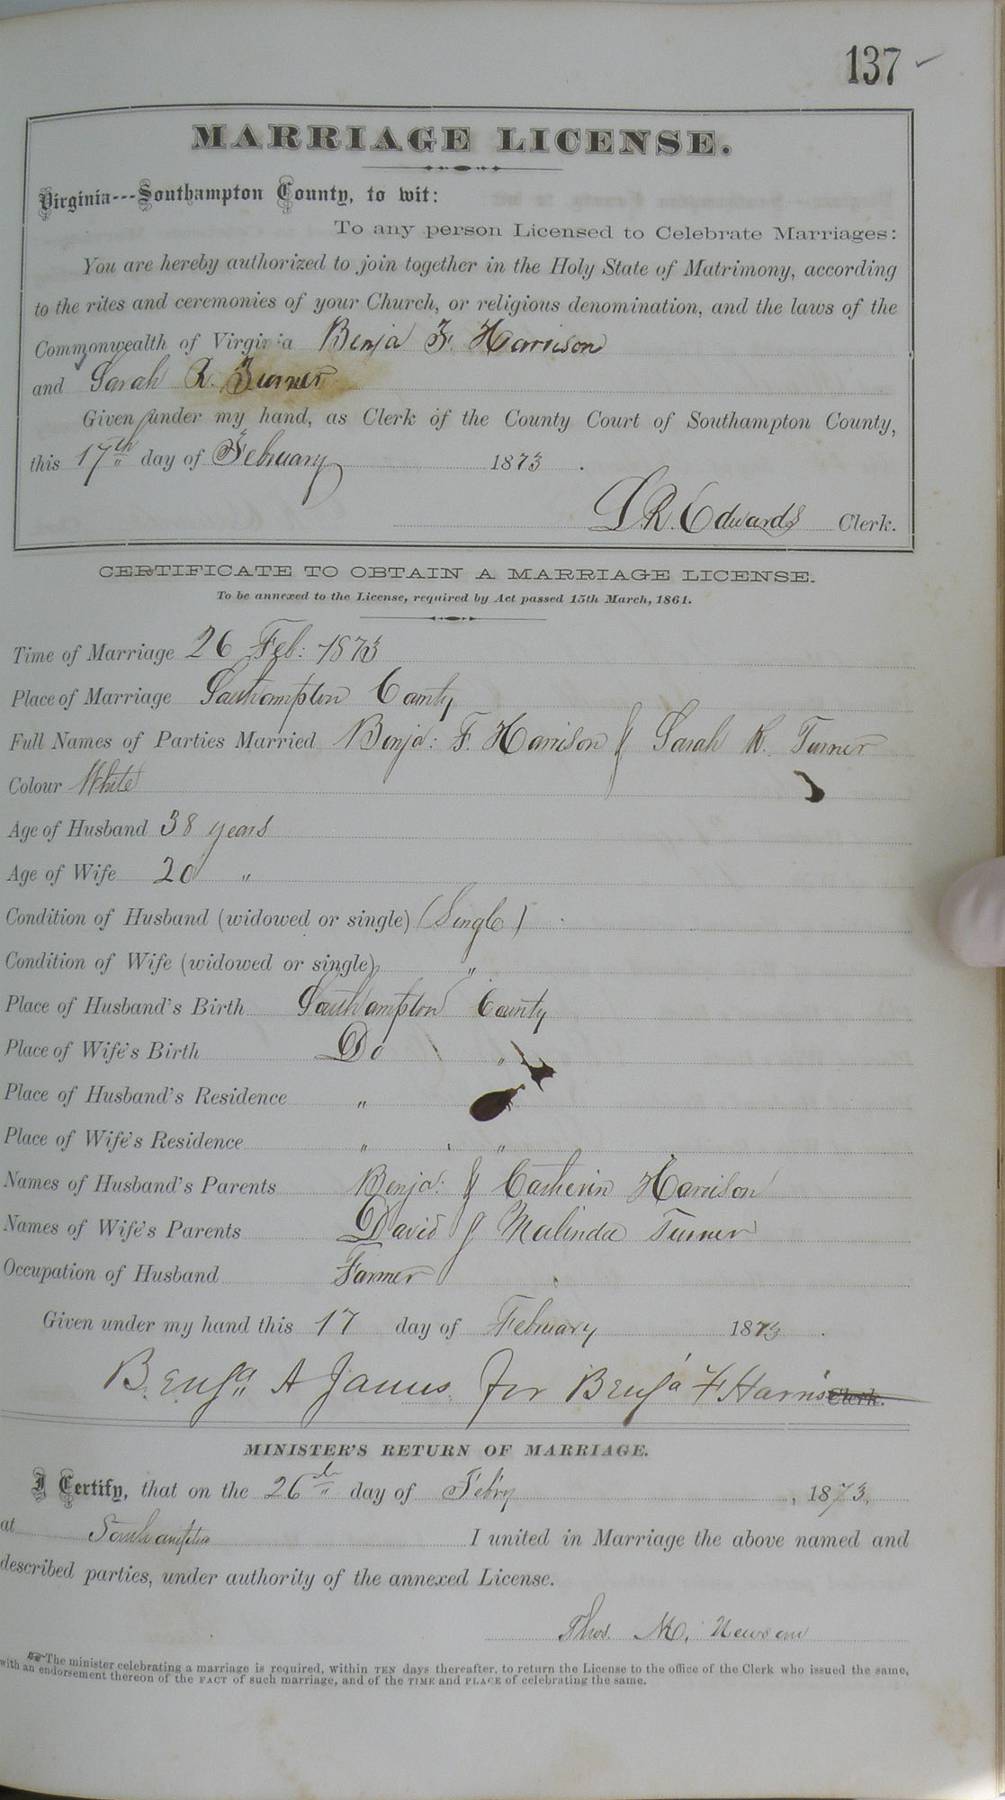 137
MARRIAGE LICENSE.
Virginia---Southampton County, to wit:
To any person Licensed to Celebrate Marriages:
You are hereby authorized to join together in the Holy State of Matrimony, according
to the rites and ceremonies of your Church, or religious denomination, and the laws of the
Commonwealth of Virginia Benja F. Harrison
and Sarah R. Turner
Given under my hand, as Clerk of the County Court of Southampton County,
this 17th day of February 1873.
L. R. Edwards Clerk.
CERTIFICATE TO OBTAIN A MARRIAGE LICENSE.
To be annexed to the License, required by Act passed 15th March, 1861.
Time of Marriage 26 Feb: 1873
Place of Marriage Southampton County
Full Names of Parties Married Benja: F. Harrison & Sarah R. Turner
Colour White
Age of Husband 38 years
Age of Wife 20 "
Condition of Husband (widowed or single) (Single)
Condition of Wife (widowed or single) "
Place of Husband's Birth Southampton County
Place of Wife's Birth Do "
Place of Husband's Residence "
Place of Wife's Residence " "
Names of Husband's Parents Benja: & Catherin Harrison
Names of Wife's Parents David & Malinda Turner
Occupation of Husband Farmer
Given under my hand this 17 day of February 1873.
Benja A James for Benja F Harris Clerk.
MINISTER'S RETURN OF MARRIAGE.
I Certify, that on the 26th day of Febry, 1873,
at Southampton I united in Marriage the above named and
described parties, under authority of the annexed License.
Thos. M. Newsom
The minister celebrating a marriage is required, within TEN days thereafter, to return the License to the office of the Clerk who issued the same,
with an endorsement thereon of the FACT of such marriage, and of the TIME and PLACE of celebrating the same.